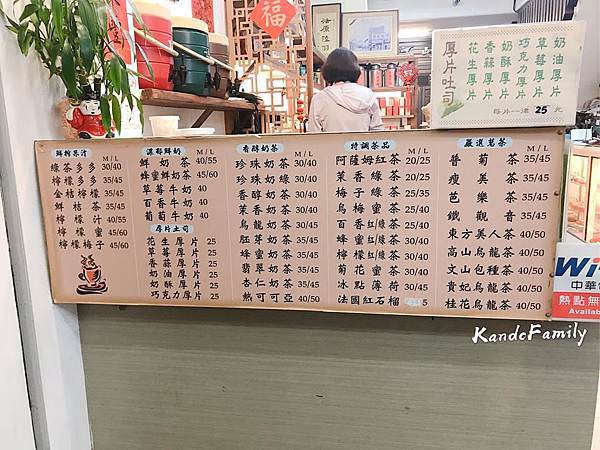 福
厚片吐司
奶油厚片
草莓厚片
巧克力厚片
奶酥厚片
香蒜厚片
花生厚片
每片一律 25 元
鮮榨果汁
M / L
綠茶多多 30/40
檸檬多多 35/45
金桔檸檬 35/45
鮮桔茶 35/45
檸檬汁 40/55
檸檬蜂蜜 45/60
檸檬梅子 45/60
濃郁鮮奶
M / L
鮮奶茶 40/55
蜂蜜鮮奶茶 45/60
草莓牛奶 40
百香牛奶 40
葡萄牛奶 40
厚片土司
花生厚片 25
草莓厚片 25
香蒜厚片 25
奶油厚片 25
奶酥厚片 25
巧克力厚片 25
香醇奶茶
M / L
珍珠奶茶 30/40
珍珠奶綠 30/40
香醇奶茶 30/40
茉香奶茶 30/40
烏龍奶茶 30/40
胚芽奶茶 35/45
蜂蜜奶茶 35/45
翡翠奶茶 35/45
杏仁奶茶 35/45
熱可可亞 40/50
特調茶品
M / L
阿薩姆紅茶 20/25
茉香綠茶 20/25
梅子綠茶 25/35
烏梅蜜茶 30/40
百香紅/綠茶 30/40
蜂蜜紅/綠茶 30/40
檸檬紅/綠茶 30/40
菊花蜜茶 30/40
冰點薄荷 30/40
法國紅石榴
嚴選茗茶
M / L
普菊茶 35/45
瘦美茶 35/45
芭樂茶 35/45
鐵觀音 35/45
東方美人茶 40/50
高山烏龍茶 40/50
文山包種茶 40/50
貴妃烏龍茶 40/50
桂花烏龍茶 40/50
Wi
中華
熱點無
Availab
KandoFamily